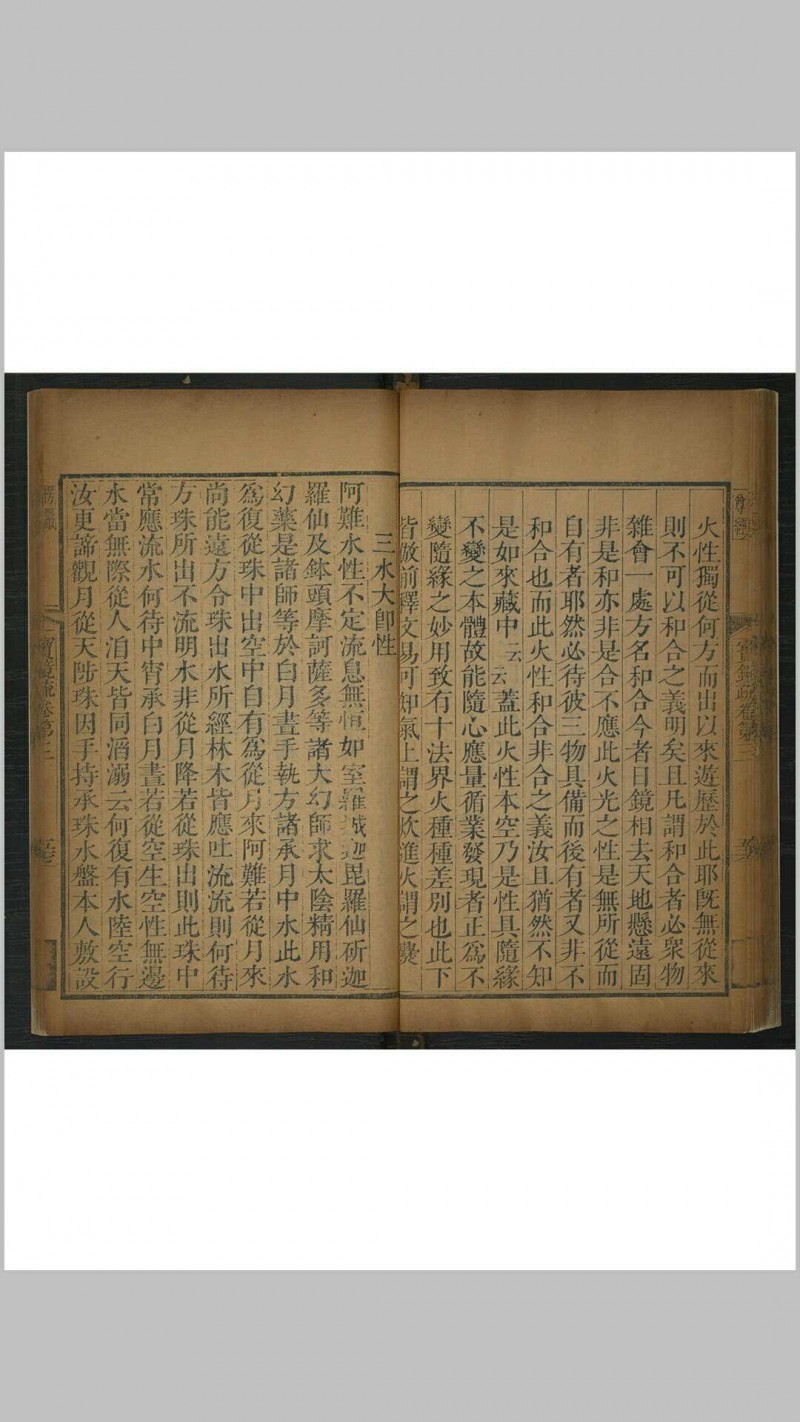 火性獨從何方而出以來遊歷於此耶旣無從來
則不可以和合之義明矣且凡謂和合者必眾物
雜會一處方名和合今者日鏡相去天地懸遠固
非是和亦非是合不應此火光之性是無所從而
自有者耶然必待彼三物具備而後有者又非不
和合也而此火性和合非合之義汝且猶然不知
是如來藏中云云蓋此火性本空乃是性具隨緣
不變之本體故能隨心應量循業發現者正為不
變隨緣之妙用致有十法界火種種差別也此下
皆倣前釋文易可知氣上謂之炊進火謂之爨
三水大卽性
阿難水性不定流息無恒如室羅城迦毘羅仙斫迦
羅仙及鉢頭摩訶薩多等諸大幻師求太陰精用和
幻藥是諸師等於白月晝手執方諸承月中水此水
為復從珠中出空中自有為從月來阿難若從月來
尚能遠方令珠出水所經林木皆應吐流流則何待
方珠所出不流明水非從月降若從珠出則此珠中
常應流水何待中宵承白月晝若從空生空性無邊
水當無際從人洎天皆同滔溺云何復有水陸空行
汝更諦觀月從天陟珠因手持承珠水盤本人敷設
寶鏡疏卷第三